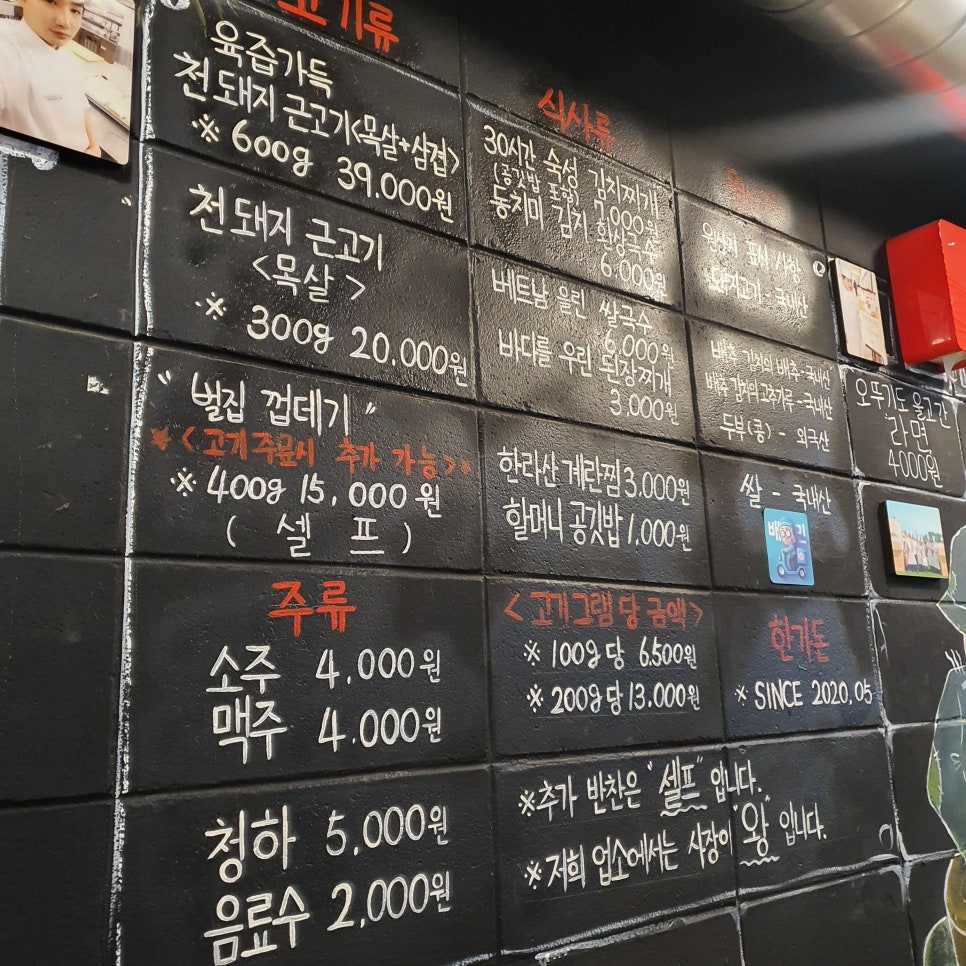 고기류
육즙가득
천돼지 근고기<목살+삼겹>
※ 600g 39,000원
천돼지 근고기
<목살>
※ 300g 20,000원
"벌집 껍데기"
<고기주문시 추가 가능>
※ 400g 15,000원
(셀프)
주류
소주 4,000원
맥주 4,000원
청하 5,000원
음료수 2,000원
식사류
30시간 숙성 김치찌개
(공깃밥 포함) 7,000원
동치미 김치 환상국수
6,000원
베트남 울린 쌀국수
6,000원
바다를 우린 된장찌개
3,000원
한라산 계란찜 3,000원
할머니 공깃밥 1,000원
<고기그램당 금액>
※ 100g당 6,500원
※ 200g당 13,000원
※추가 반찬은 "셀프"입니다.
※저희 업소에서는 사장이 "왕"입니다.
원산지 표시 사항
돼지고기 - 국내산
배추 김치의 배추-국내산
배추 김치의 고추가루-국내산
두부(콩) - 외국산
쌀 - 국내산
한가돈
※ SINCE 2020.05
오뚜기도 울고간
"라면"
4000원